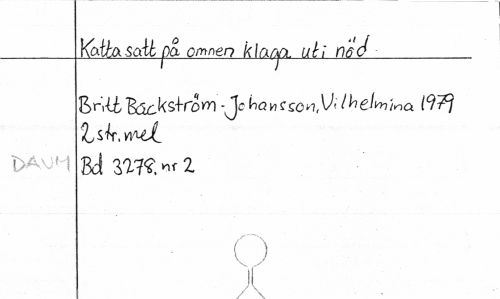 Katta satt på omnen klaga uti nöd.
Britt Bäckström-Johansson, Vilhelmina 1979
2 str. mel
DAUM Bd 3278, nr 2